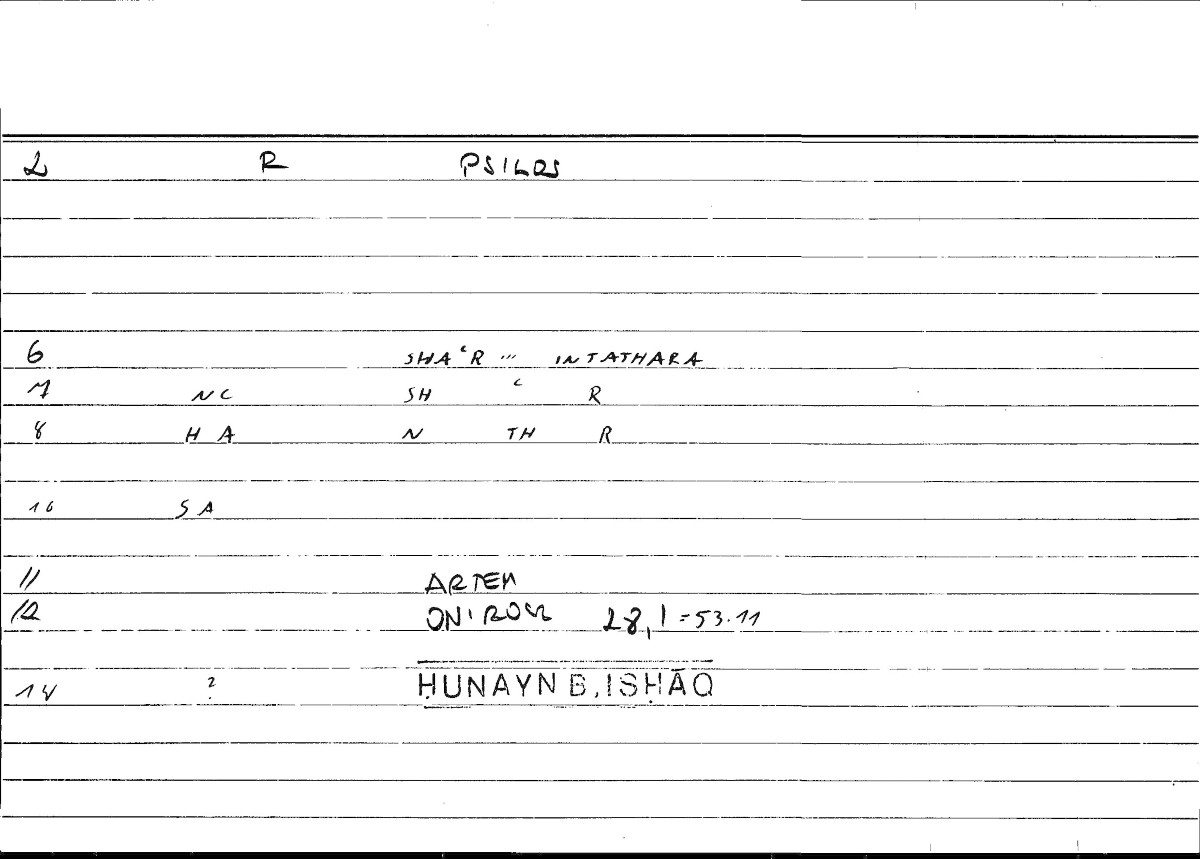 2 R PSILOS
6 SHAʿR ... INTATHARA
7 NC SH ʿ R
8 H A N TH R
10 S A
11 ARTEM
12 ONIROCR 28,1=53.11
14 ? ḤUNAYN B. ISḤĀQ